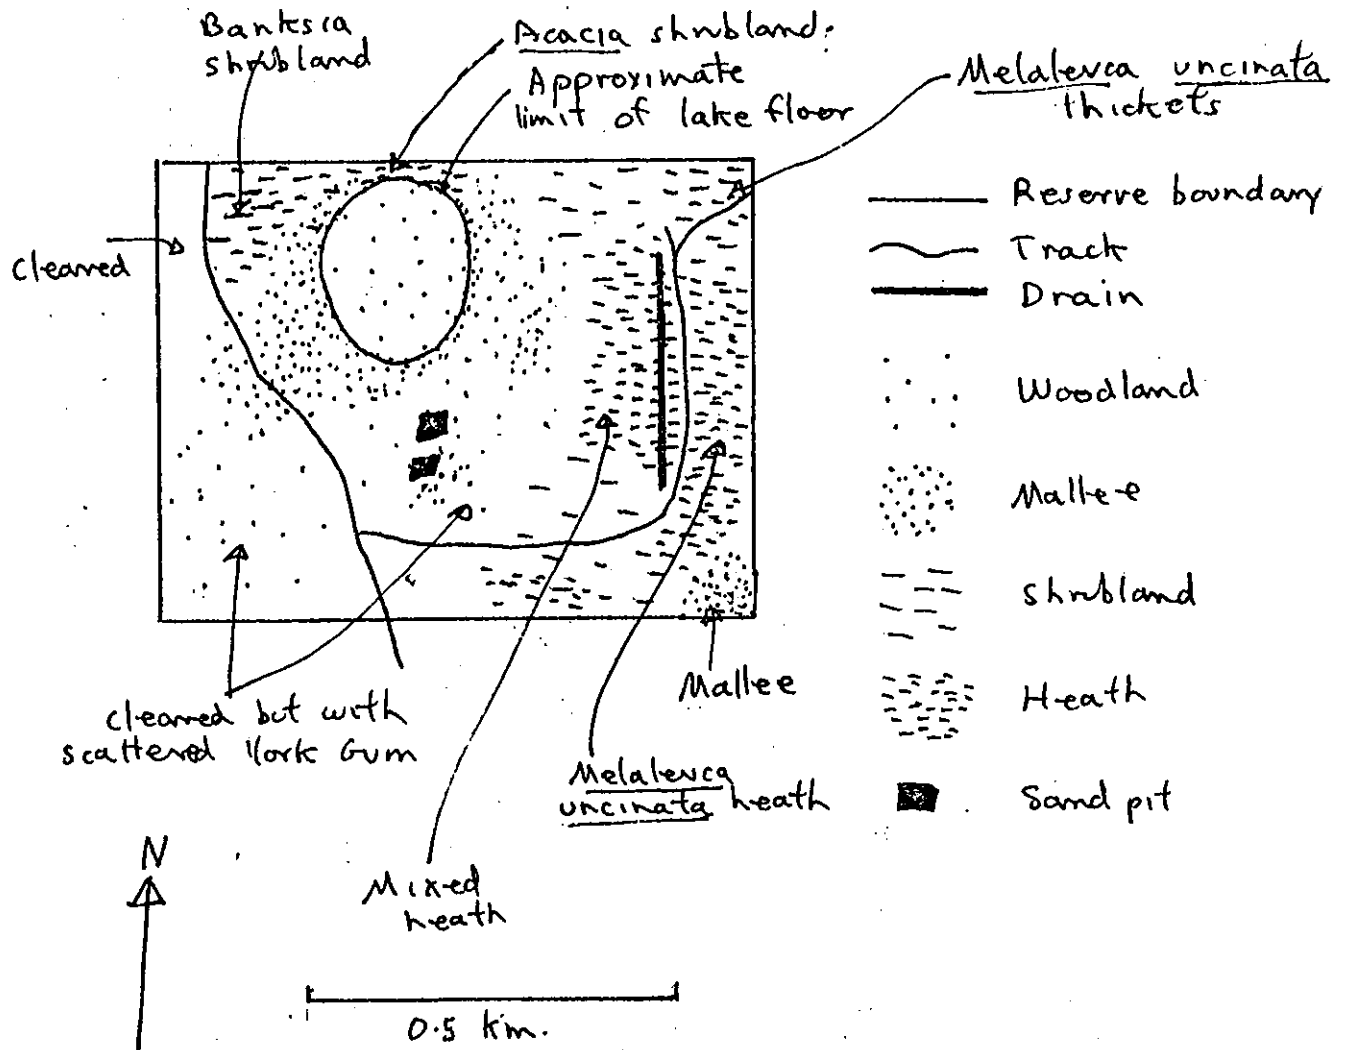 Banksia
shrubland
Acacia shrubland.
Approximate
limit of lake floor
Melaleuca uncinata
thickets
Cleared
Reserve boundary
Track
Drain
Woodland
Mallee
Shrubland
Heath
Sand pit
Cleared but with
scattered York Gum
Mallee
Melaleuca
uncinata heath
Mixed
heath
N
0.5 km.